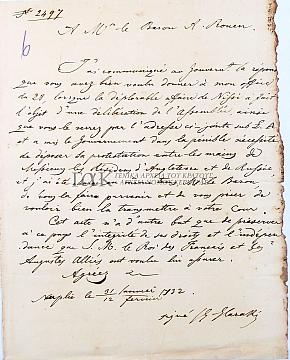 No 2497
A Mr le Baron A. Rouen
6
J'ai communiqué au Gouvernt la réponse
que vous avez bien voulu donner à mon office
du 28, lorsque la déplorable affaire de Nisi a fait
l'objet d'une délibération de l'Assemblée, ainsi
que vous le verrez par l'adresse ci-jointe sub L. A
et a mis le Gouvernement dans la pénible nécessité
de déposer sa protestation entre les mains de
Messieurs les Résidens d'Angleterre et de Russie
et j'ai M. le Baron,
de vous la faire parvenir et de vous prier de
vouloir bien la transmettre à votre Cour.
Cet acte n'a d'autre but que de préserver
à ce pays l'intégrité de ses droits et l'indépen
dance que S. M. le Roi des Français et Ses
Augustes Alliés ont voulu lui assurer.
Agréez
Nauplie le 31 Janvier / 12 février 1832
signé